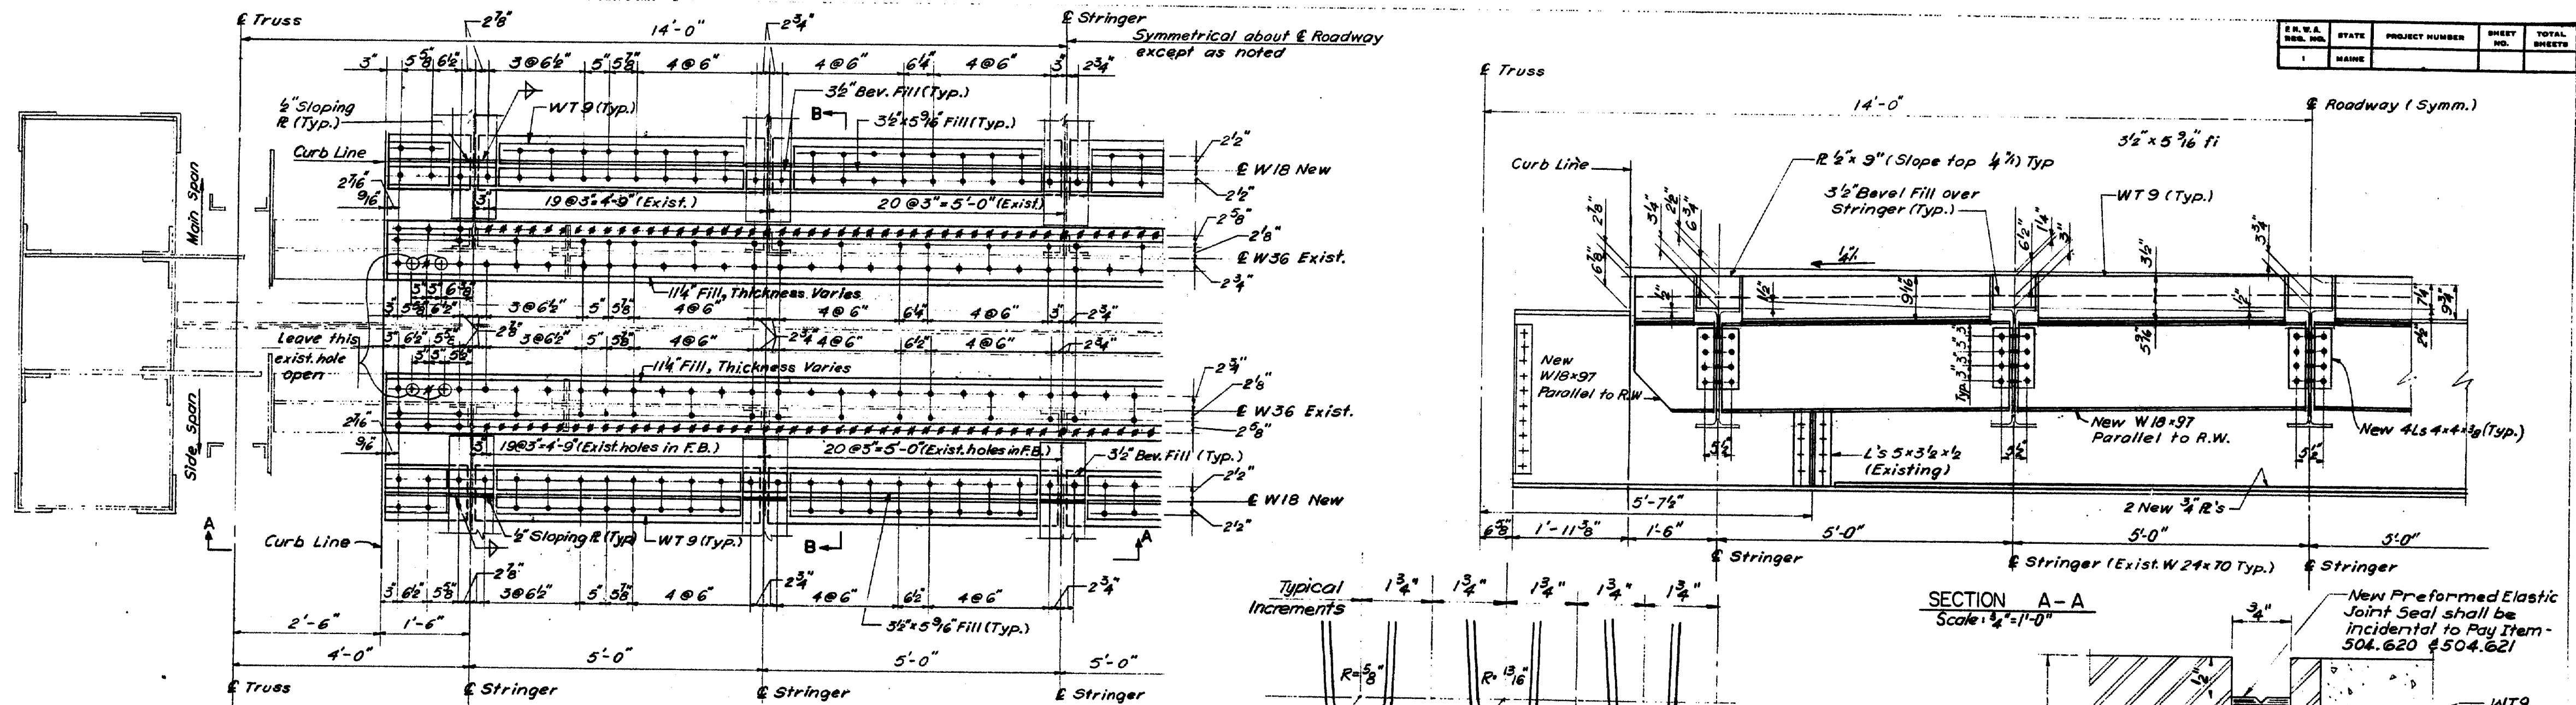 ℄ Truss
2⅞"
14'-0"
2¾"
℄ Stringer
Symmetrical about ℄ Roadway
except as noted
3" 5⅝" 6½" 3@6½" 5" 5⅞" 4@6" 4@6" 6¼" 4@6" 3" 2¾"
½" Sloping
℄ (Typ.)
WT9 (Typ.)
3½" Bev. Fill (Typ.)
B
3½"x5 9/16" Fill (Typ.)
Curb Line
2½"
℄ W18 New
2½"
2 7/16"
9/16"
3"
19@3"=4'-9" (Exist.)
20@3"=5'-0" (Exist.)
Main Span
2⅝"
2⅛"
℄ W36 Exist.
2¾"
3" 3" 6⅜"
11¼" Fill, Thickness Varies
3" 5⅝" 6½" 3@6½" 5" 5⅞" 4@6" 4@6" 6¼" 4@6" 3" 2¾"
Leave this
exist. hole
open
2⅞"
2¾"
6½" 5⅝" 3@6½" 5" 5⅞" 4@6" 4@6" 6½" 4@6" 2¾"
3" 3" 5½"
11¼" Fill, Thickness Varies
2¾"
2⅛"
℄ W36 Exist.
2⅝"
Side Span
2 7/16"
9/16"
3"
19@3"=4'-9" (Exist. holes in F.B.)
20@3"=5'-0" (Exist. holes in F.B.)
3½" Bev. Fill (Typ.)
2½"
℄ W18 New
2½"
A
Curb Line
½" Sloping ℄ (Typ)
WT9 (Typ.)
B
A
2⅞"
2¾"
2¾"
3" 6½" 5⅝" 3@6½" 5" 5⅞" 4@6" 4@6" 6½" 4@6"
3½"x5 9/16" Fill (Typ.)
2'-6"
1'-6"
4'-0"
5'-0"
5'-0"
5'-0"
℄ Truss
℄ Stringer
℄ Stringer
℄ Stringer
F.H.W.A. REG. NO.
STATE
PROJECT NUMBER
SHEET NO.
TOTAL SHEETS
1
MAINE
℄ Truss
14'-0"
℄ Roadway (Symm.)
3½"x5 9/16" fi
Curb Line
℄ ½"x9" (Slope top ¼"/1) Typ
3½" Bevel Fill over
Stringer (Typ.)
WT9 (Typ.)
6⅞"
2⅞"
3¼"
2½"
6¾"
6½"
1¼"
3"
3½"
3¾"
½"
1½"
9/16"
5 9/16"
½"
7¼"
9¾"
2½"
New
W18x97
Parallel to R.W
Typ. 3" 3" 3" 3"
New W18x97
Parallel to R.W.
New 4Ls 4x4x⅜ (Typ.)
5½"
5½"
5½"
L's 5x3½x½
(Existing)
5'-7½"
2 New ¾" ℄'s
6⅝" 1'-11⅜" 1'-6" 5'-0" 5'-0" 5'-0"
℄ Stringer
℄ Stringer (Exist. W24x70 Typ.)
℄ Stringer
SECTION A-A
Scale: ¾"=1'-0"
Typical
Increments
1¾" 1¾" 1¾" 1¾" 1¾"
R=⅝"
R=13/16"
¾"
New Preformed Elastic
Joint Seal shall be
incidental to Pay Item-
504.620 & 504.621
1½"
WT9